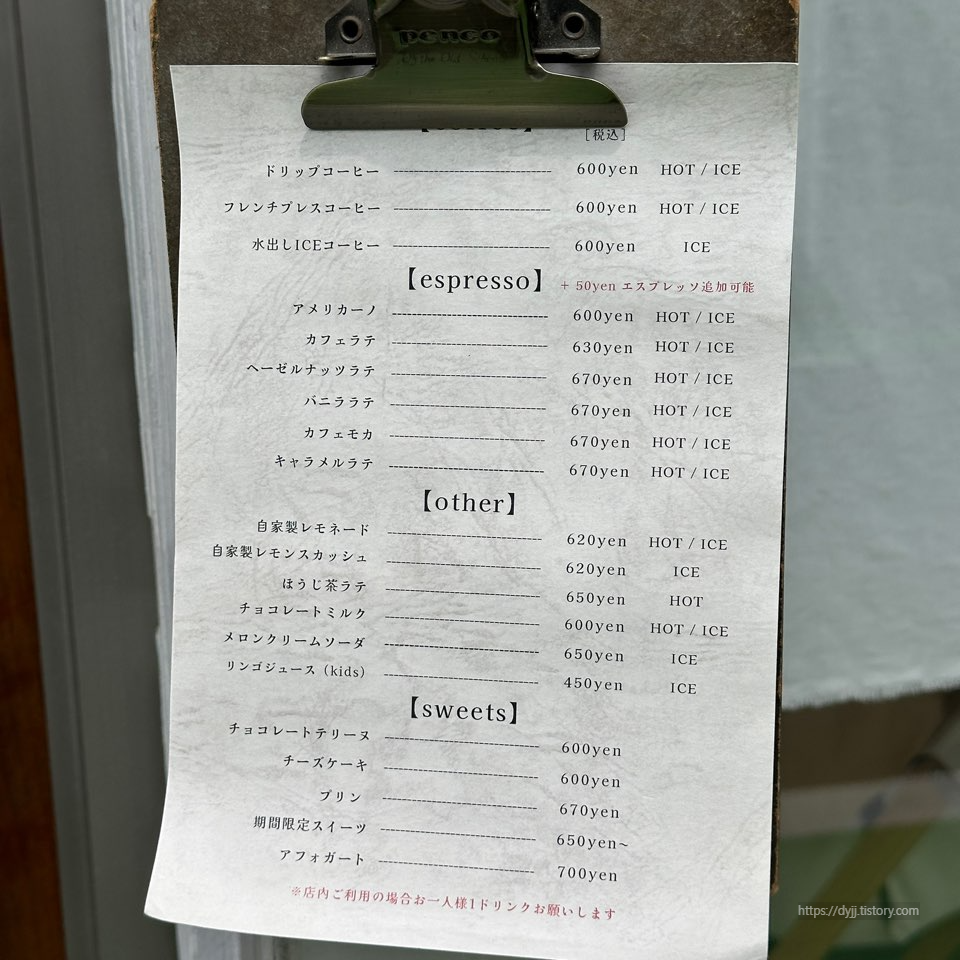 penco
[税込]
ドリップコーヒー 600yen HOT / ICE
フレンチプレスコーヒー 600yen HOT / ICE
水出しICEコーヒー 600yen ICE
【espresso】 + 50yen エスプレッソ追加可能
アメリカーノ 600yen HOT / ICE
カフェラテ 630yen HOT / ICE
ヘーゼルナッツラテ 670yen HOT / ICE
バニララテ 670yen HOT / ICE
カフェモカ 670yen HOT / ICE
キャラメルラテ 670yen HOT / ICE
【other】
自家製レモネード 620yen HOT / ICE
自家製レモンスカッシュ 620yen ICE
ほうじ茶ラテ 650yen HOT
チョコレートミルク 600yen HOT / ICE
メロンクリームソーダ 650yen ICE
リンゴジュース（kids） 450yen ICE
【sweets】
チョコレートテリーヌ 600yen
チーズケーキ 600yen
プリン 670yen
期間限定スイーツ 650yen~
アフォガート 700yen
※店内ご利用の場合お一人様1ドリンクお願いします
https://dyjj.tistory.com